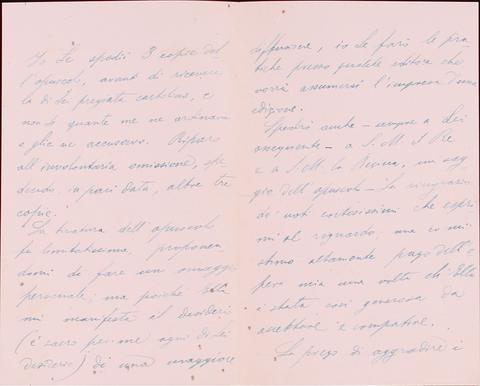 Io Le spedii 3 copie del
l'opuscolo, avanti di ricevere
la di Lei pregiata cartolina, e
non so quante me ne
e glie ne accusavo. Riparo
all'involontaria omissione, spe
dendo, in pari data, altre tre
copie.
La tiratura dell'opuscolo
fu limitatissima, proponen
domi di fare un omaggio
personale; ma poichè Ella
mi manifesta il desiderio
(è sacro per me ogni di Lei
desiderio) di una maggiore
diffusione, io Le farò le pra
tiche presso qualche editore che
vorrà assumersi l'impresa d'una
edizione.
Spedirò anche – sempre a Lei
ossequente – a S. M. il Re
e a S. M. la Regina, un sag
gio dell'opuscolo – La ringrazio
de' voti cortesissimi che espri
mi al riguardo: una co mi
stimo altamente pago dell'o
pera mia una volta ch'Ella
è stata così generosa da
accettare e compatire.
La prego di aggradire i